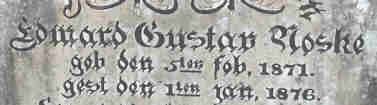 Edward Gustav Noske
geb den 5ten feb, 1871.
gest den 1ten jan, 1876.